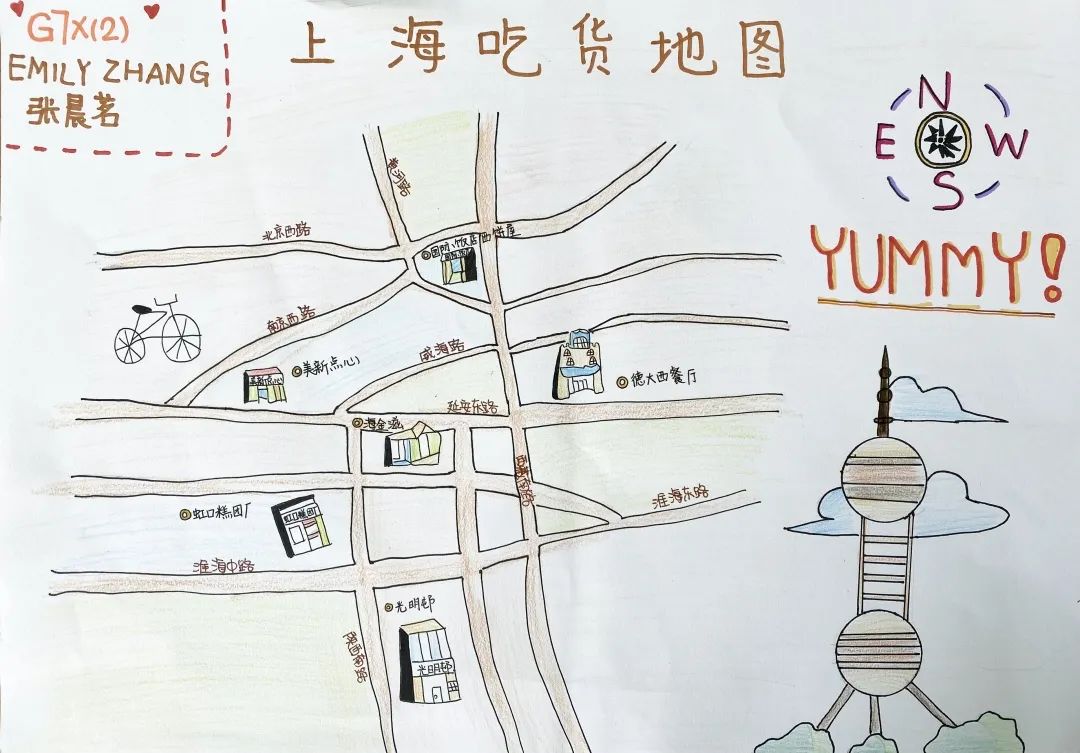 G7X(2)
EMILY ZHANG
张晨茗
上海吃货地图
N
E W
S
YUMMY!
黄河路
北京西路
国际饭店西饼屋
南京西路
美新点心
美新点心
威海路
德大西餐厅
延安东路
海金滋
虹口糕团厂
虹口糕团厂
淮海东路
淮海中路
光明邨
光明邨
陕西南路